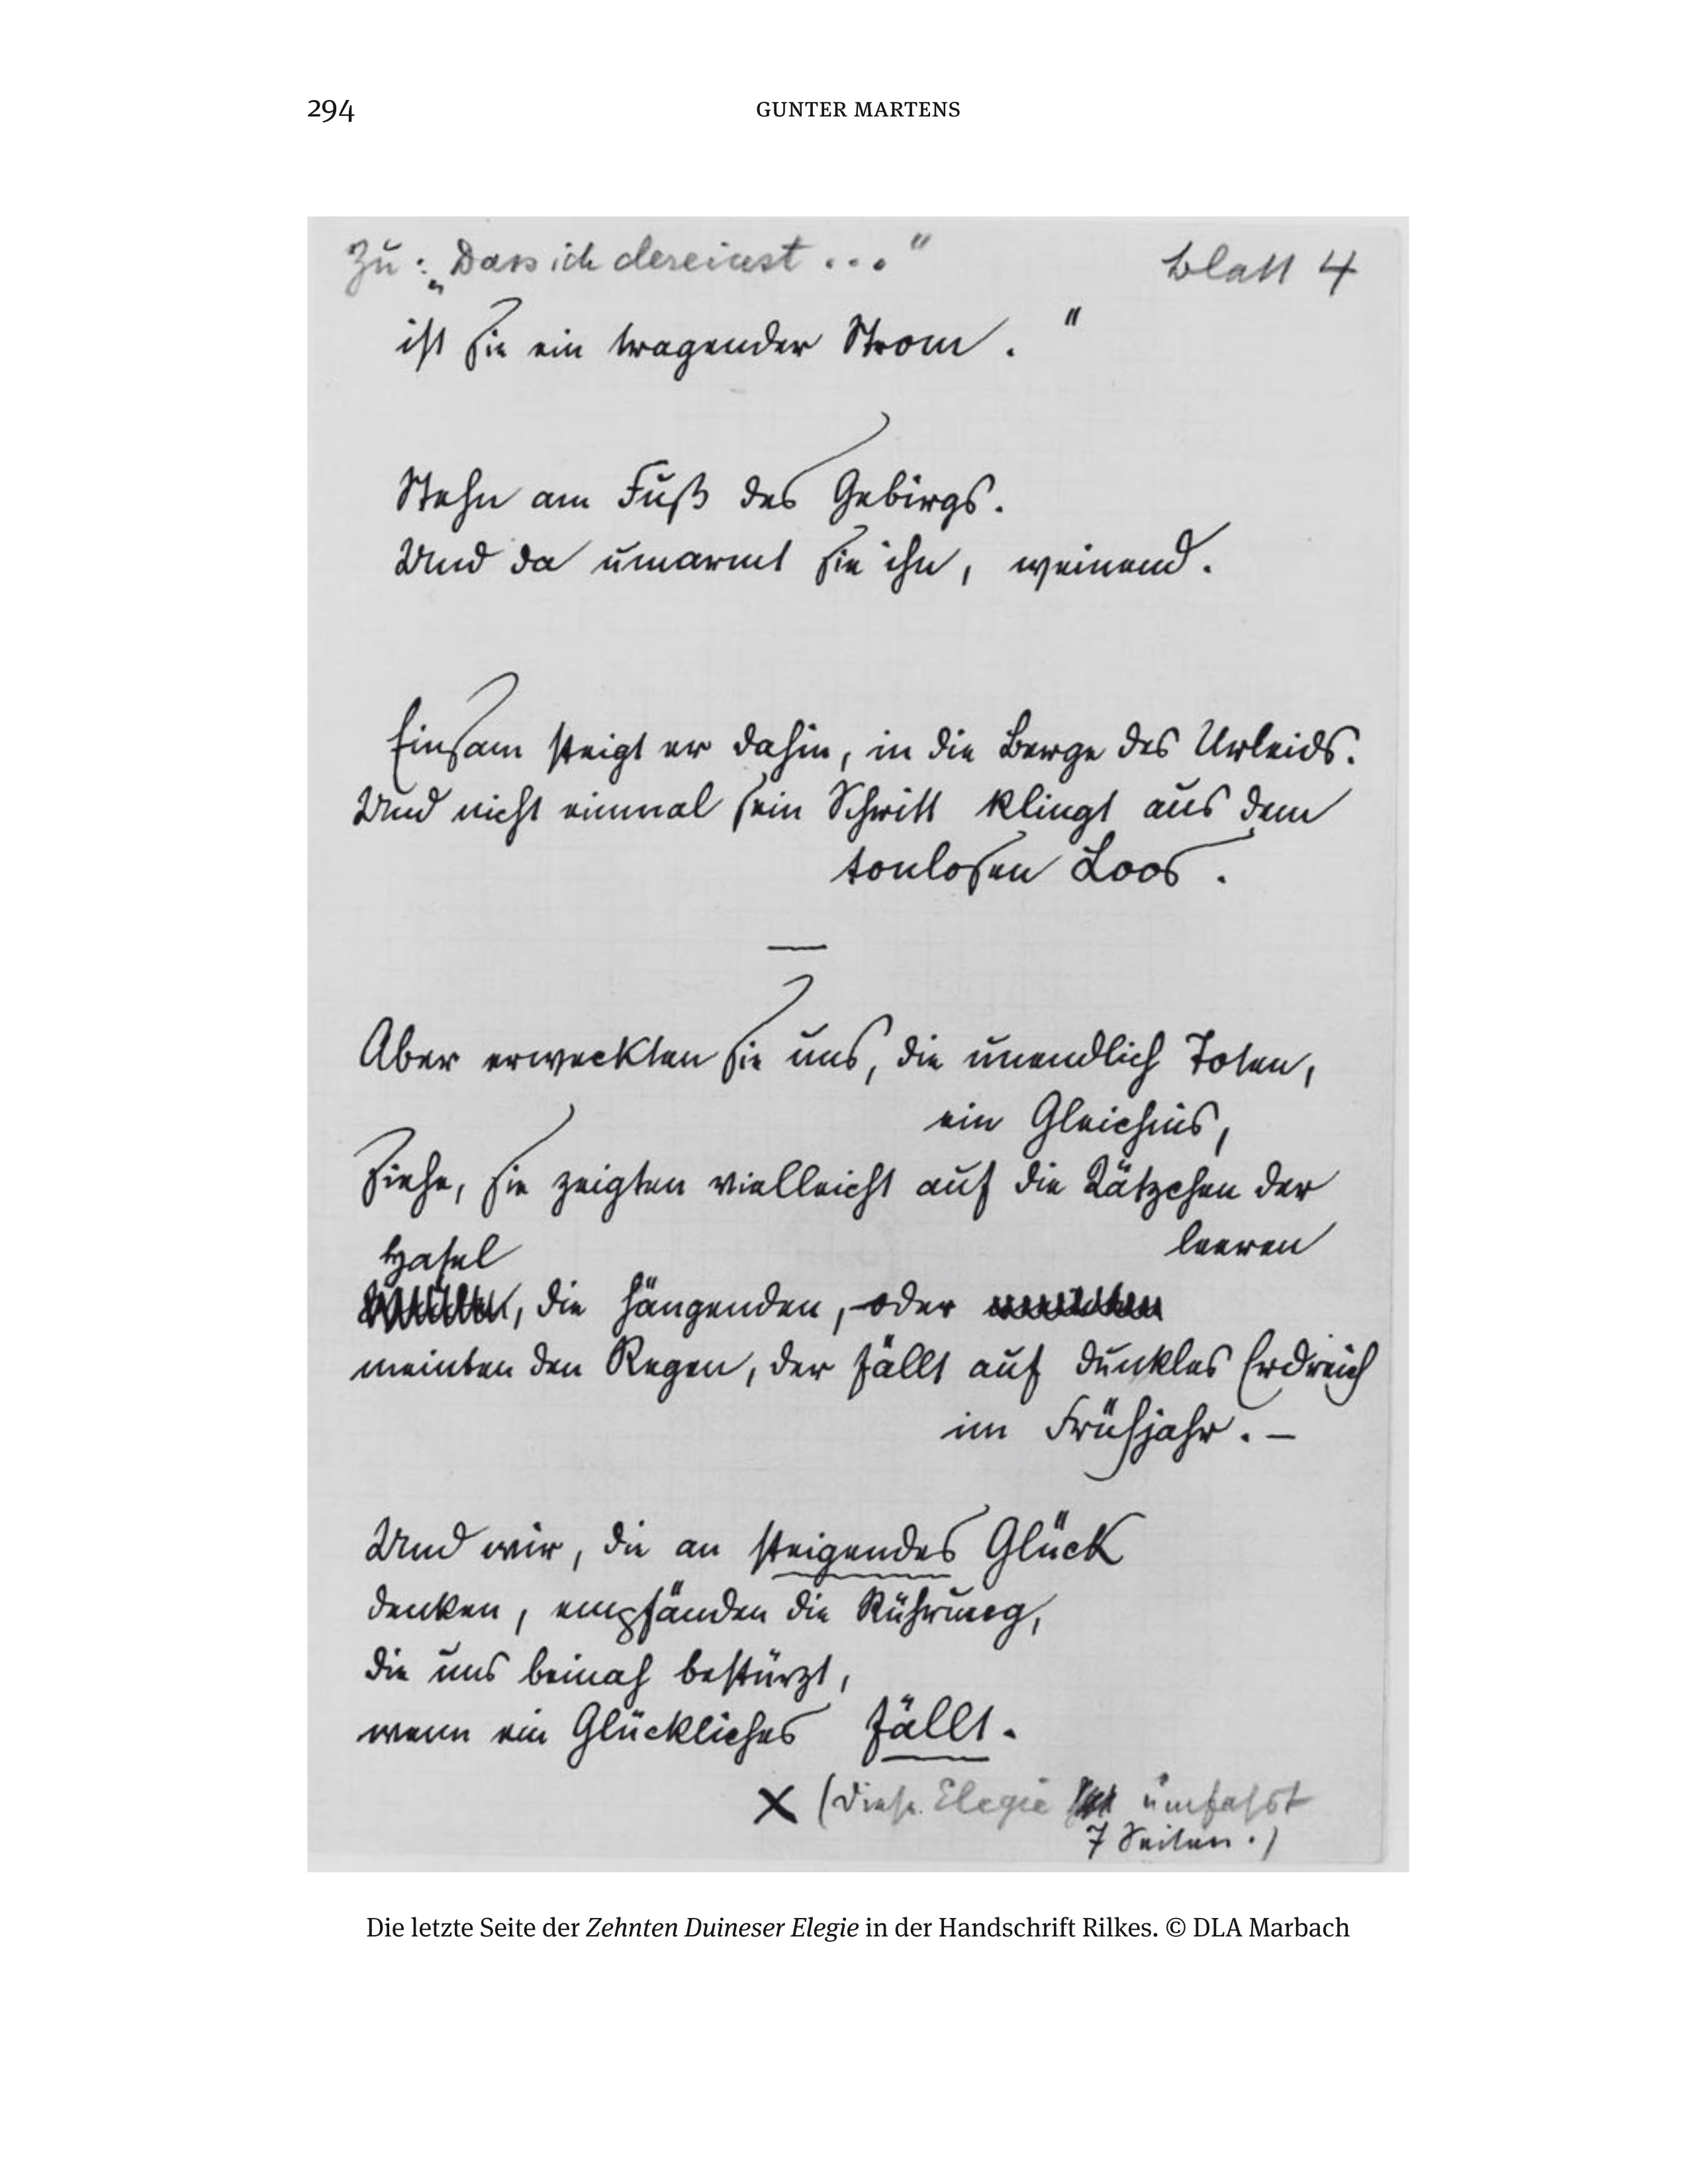 294
GUNTER MARTENS
Zu: „Dass ich dereinst . . ." Blatt 4
ist sie ein tragender Strom. "
Stehn am Fuß des Gebirgs.
Und da umarmt sie ihn, weinend.
Einsam steigt er dahin, in die Berge des Urleids.
Und nicht einmal sein Schritt klingt aus dem
tonlosen Loos.
—
Aber erweckten sie uns, die unendlich Toten,
ein Gleichnis,
Siehe, sie zeigten vielleicht auf die Kätzchen der
leeren
Hasel
, die hängenden, – oder
meinten den Regen, der fällt auf dunkles Erdreich
im Frühjahr. –
Und wir, die an steigendes Glück
denken, empfänden die Rührung,
die uns beinah bestürzt,
wenn ein Glückliches fällt.
X (Diese Elegie umfasst
7 Seiten.)
Die letzte Seite der Zehnten Duineser Elegie in der Handschrift Rilkes. © DLA Marbach